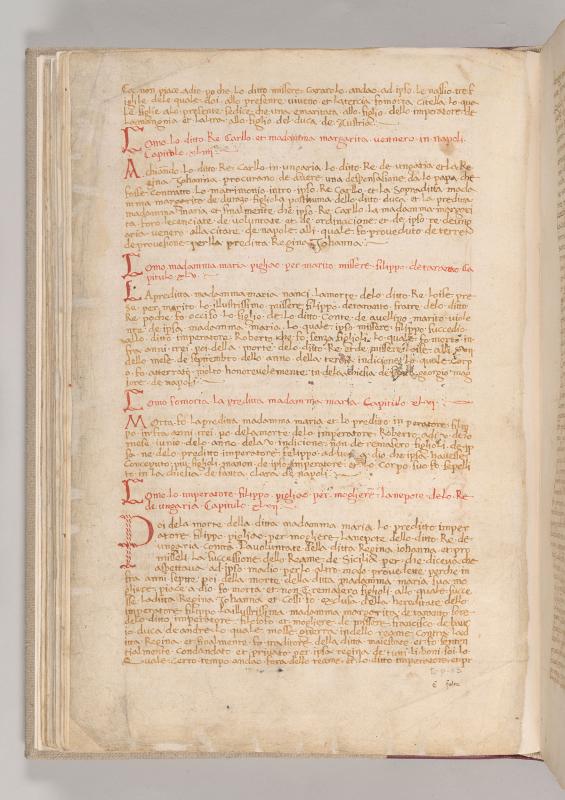 Co, non piace adio po che lo ditto missere carazolo andao ad ipso le nassio tre f
iglile dele quale doi allo presente viveno et laterzia fo morta citella lo qua
le figlie alo presente sedice che una emaritata allo figlio dello imperatore de
lamangnia et laltra allo figlio del duca de Austria
Como lo ditto Re Carllo et madamma margarita vennero in napoli
Capitolo xliiii
Achiando lo ditto Re Carllo in ungaria lo ditto Re de ungaria et la Re
gina Johanna procurano de avere una despensatione da lo papa che
fosse contratto lo matrimonio intro ipso Re Carllo et la sopraditta mada
mma margarite de durazo figliola postuma dello ditto duca et la predita
madamma maria et finalmente che ipso Re Carllo la madamma margari
ta foro lecenciate de voluntate et de ordinacione et de ipso re de un
garia venero alla citate de napole alli quale fo proveduto de terra
de provesione per lla preditta Regina Johanna
Como madamma maria pigliao per marito missere filippo de taranto Ca
pitulo xlv
La preditta madamma maria nanci la morte delo ditto Re Loise pre
se per marito lo illustrissimo missere filippo de taranto fratre delo ditto
Re po che fo occiso lo figlio de lo ditto Conte de avellino marito viole
nte de ipsa madamma maria lo quale ipso missere filippo succedio
allo ditto imperatore Roberto che fo senza figlioli lo quale fo morto in
fra anni trei poi della morte delo ditto Re et de missere loise alli
dello mese de septembro dello anno della terza indicione lo quale Corp
o fo atterrato molto honorevelemente in dela chiesia de georgio mag
iore de napoli
Como fo morta la preditta madamma maria Capitulo xlvi
Morta fo la preditta madamma maria et lo preditto imperatore filip
po infra anni trei po dela morte delo imperatore Roberto adi v delo
mese iunio delo anno dela v indicione non de remasero figlioli de ip
sa ne delo preditto imperatore felippo ad dio che ipsa havesse
Conceputo piu figlioli manon de ipso imperatore et lo Corpo suo fo sepelli
to in la chiesia de santa clara de napoli
Como lo imperatore filippo pigliao per mogliere la nepote delo Re
de ungaria Capitulo xlvii
Poi dela morte della ditta madamma maria lo preditto imper
atore filippo pigliao per mogliere la nepote dello ditto Re de
ungaria contra la voluntate della ditta Regina iohanna et pro
missoli la successione dello Reame de Sicilia per che diceva che
aspettava ad ipso madio per lo altro modo provedette perche in
fra anni septte poi della morte della ditta madamma maria sua mo
gliere piace a dio fo morta et non de remasero figlioli allo quale succe
sse la ditta Regina Johanna et Cossi fo exclusa della hereditate dello
imperatore filippo la illustrissima madamma margarita de taranto sore
delo ditto imperatore filippo et mogliere de missere francisco de bauc
io duca de andre lo quale mosse guerra indello reame contra la d
itta Regina et finalmente fo traditore della ditta maiestate et fo senten
tialmente condandato et privato per ipsa regina de tutti li boni soi lo
Quale certo tempo andao fora dello reame et lo ditto imperatore et pr